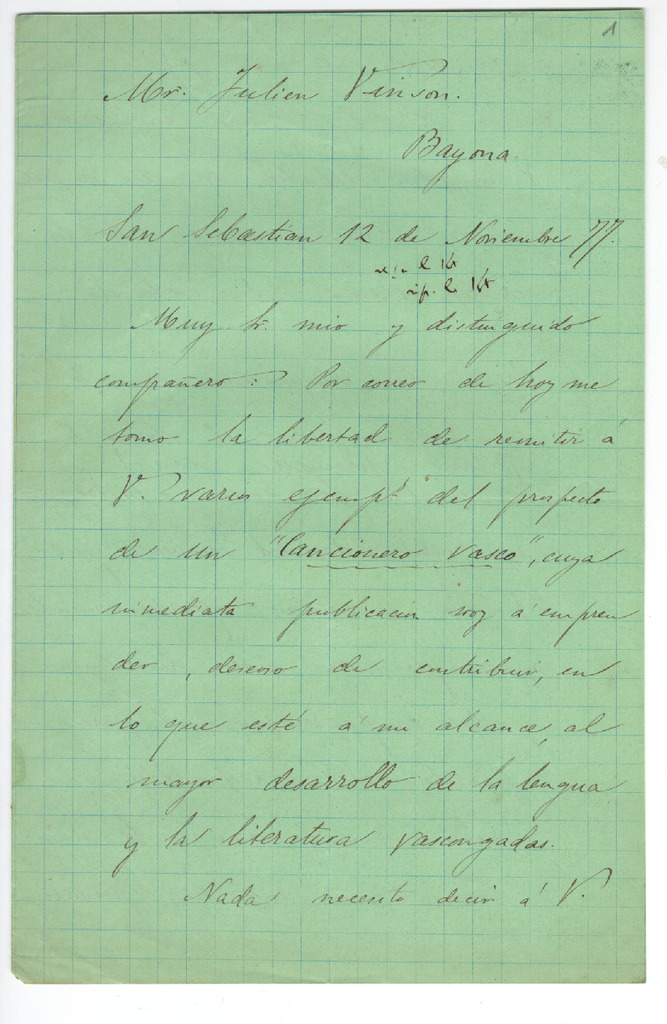 1
Mr. Julien Vinson.
Bayona.
San Sebastian 12 de Noviembre 77.
le 14
rép. le 14
Muy Sr. mio y distinguido
compañero: Por correo de hoy me
tomo la libertad de remitir á
V. varios ejempls del prospecto
de un "Cancionero Vasco", cuya
inmediata publicacion voy á empren
der, deseoso de contribuir, en
lo que esté á mi alcance, al
mayor desarrollo de la lengua
y la literatura vascongadas.
Nada necesito decir á V.